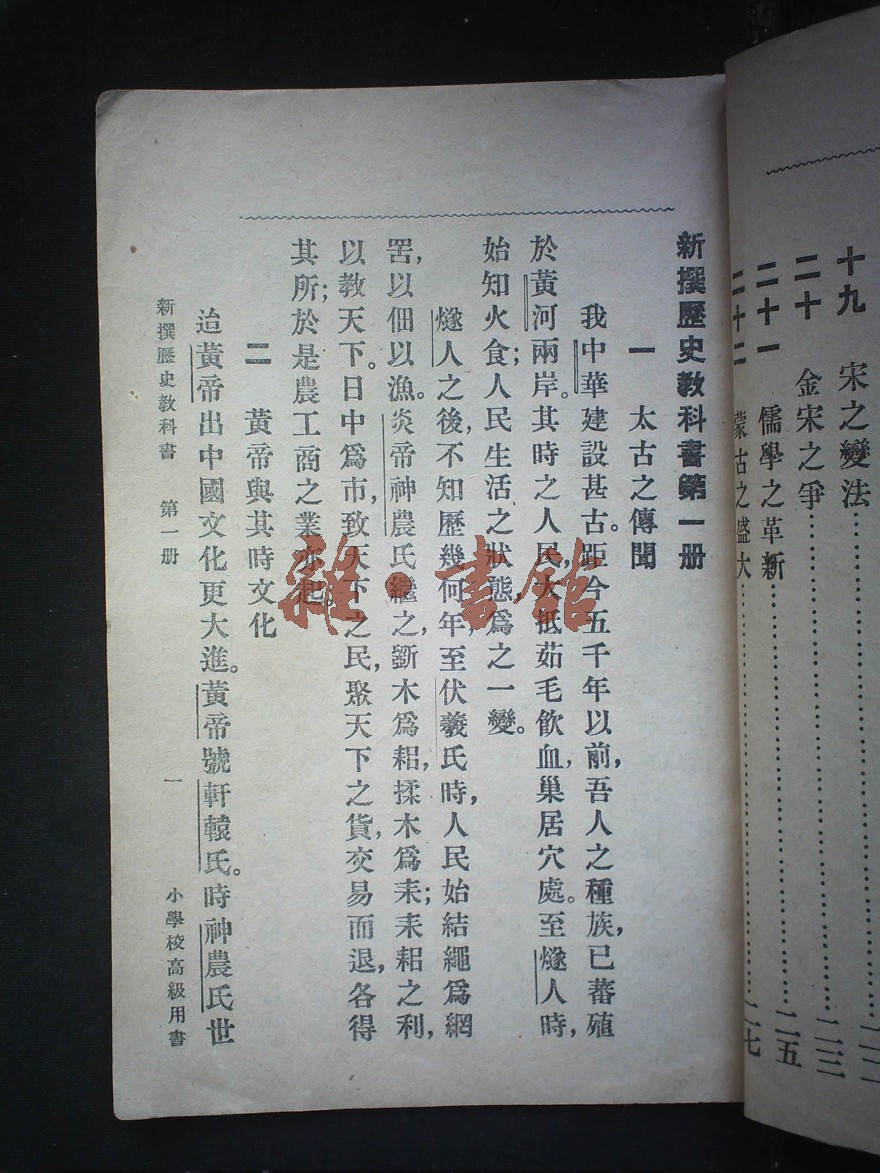 十九　宋之變法……
二十　金宋之爭……二三
二十一　儒學之革新……二五
二十二　蒙古之盛大……二七
新撰歷史教科書第一册
一　太古之傳聞
我中華建設甚古。距今五千年以前，吾人之種族，已蕃殖
於黃河兩岸。其時之人民，大抵茹毛飲血，巢居穴處。至燧人時，
始知火食；人民生活之狀態，爲之一變。
燧人之後，不知歷幾何年，至伏羲氏時，人民始結繩爲網
罟，以佃以漁。炎帝神農氏繼之，斵木爲耜，揉木爲耒；耒耜之利，
以教天下。日中爲市，致天下之民，聚天下之貨，交易而退，各得
其所；於是農工商之業亦起。
二　黃帝與其時文化
迨黃帝出中國文化更大進。黃帝號軒轅氏。時神農氏世
新撰歷史教科書　第一册　一　小學校高級用書
雜·書館